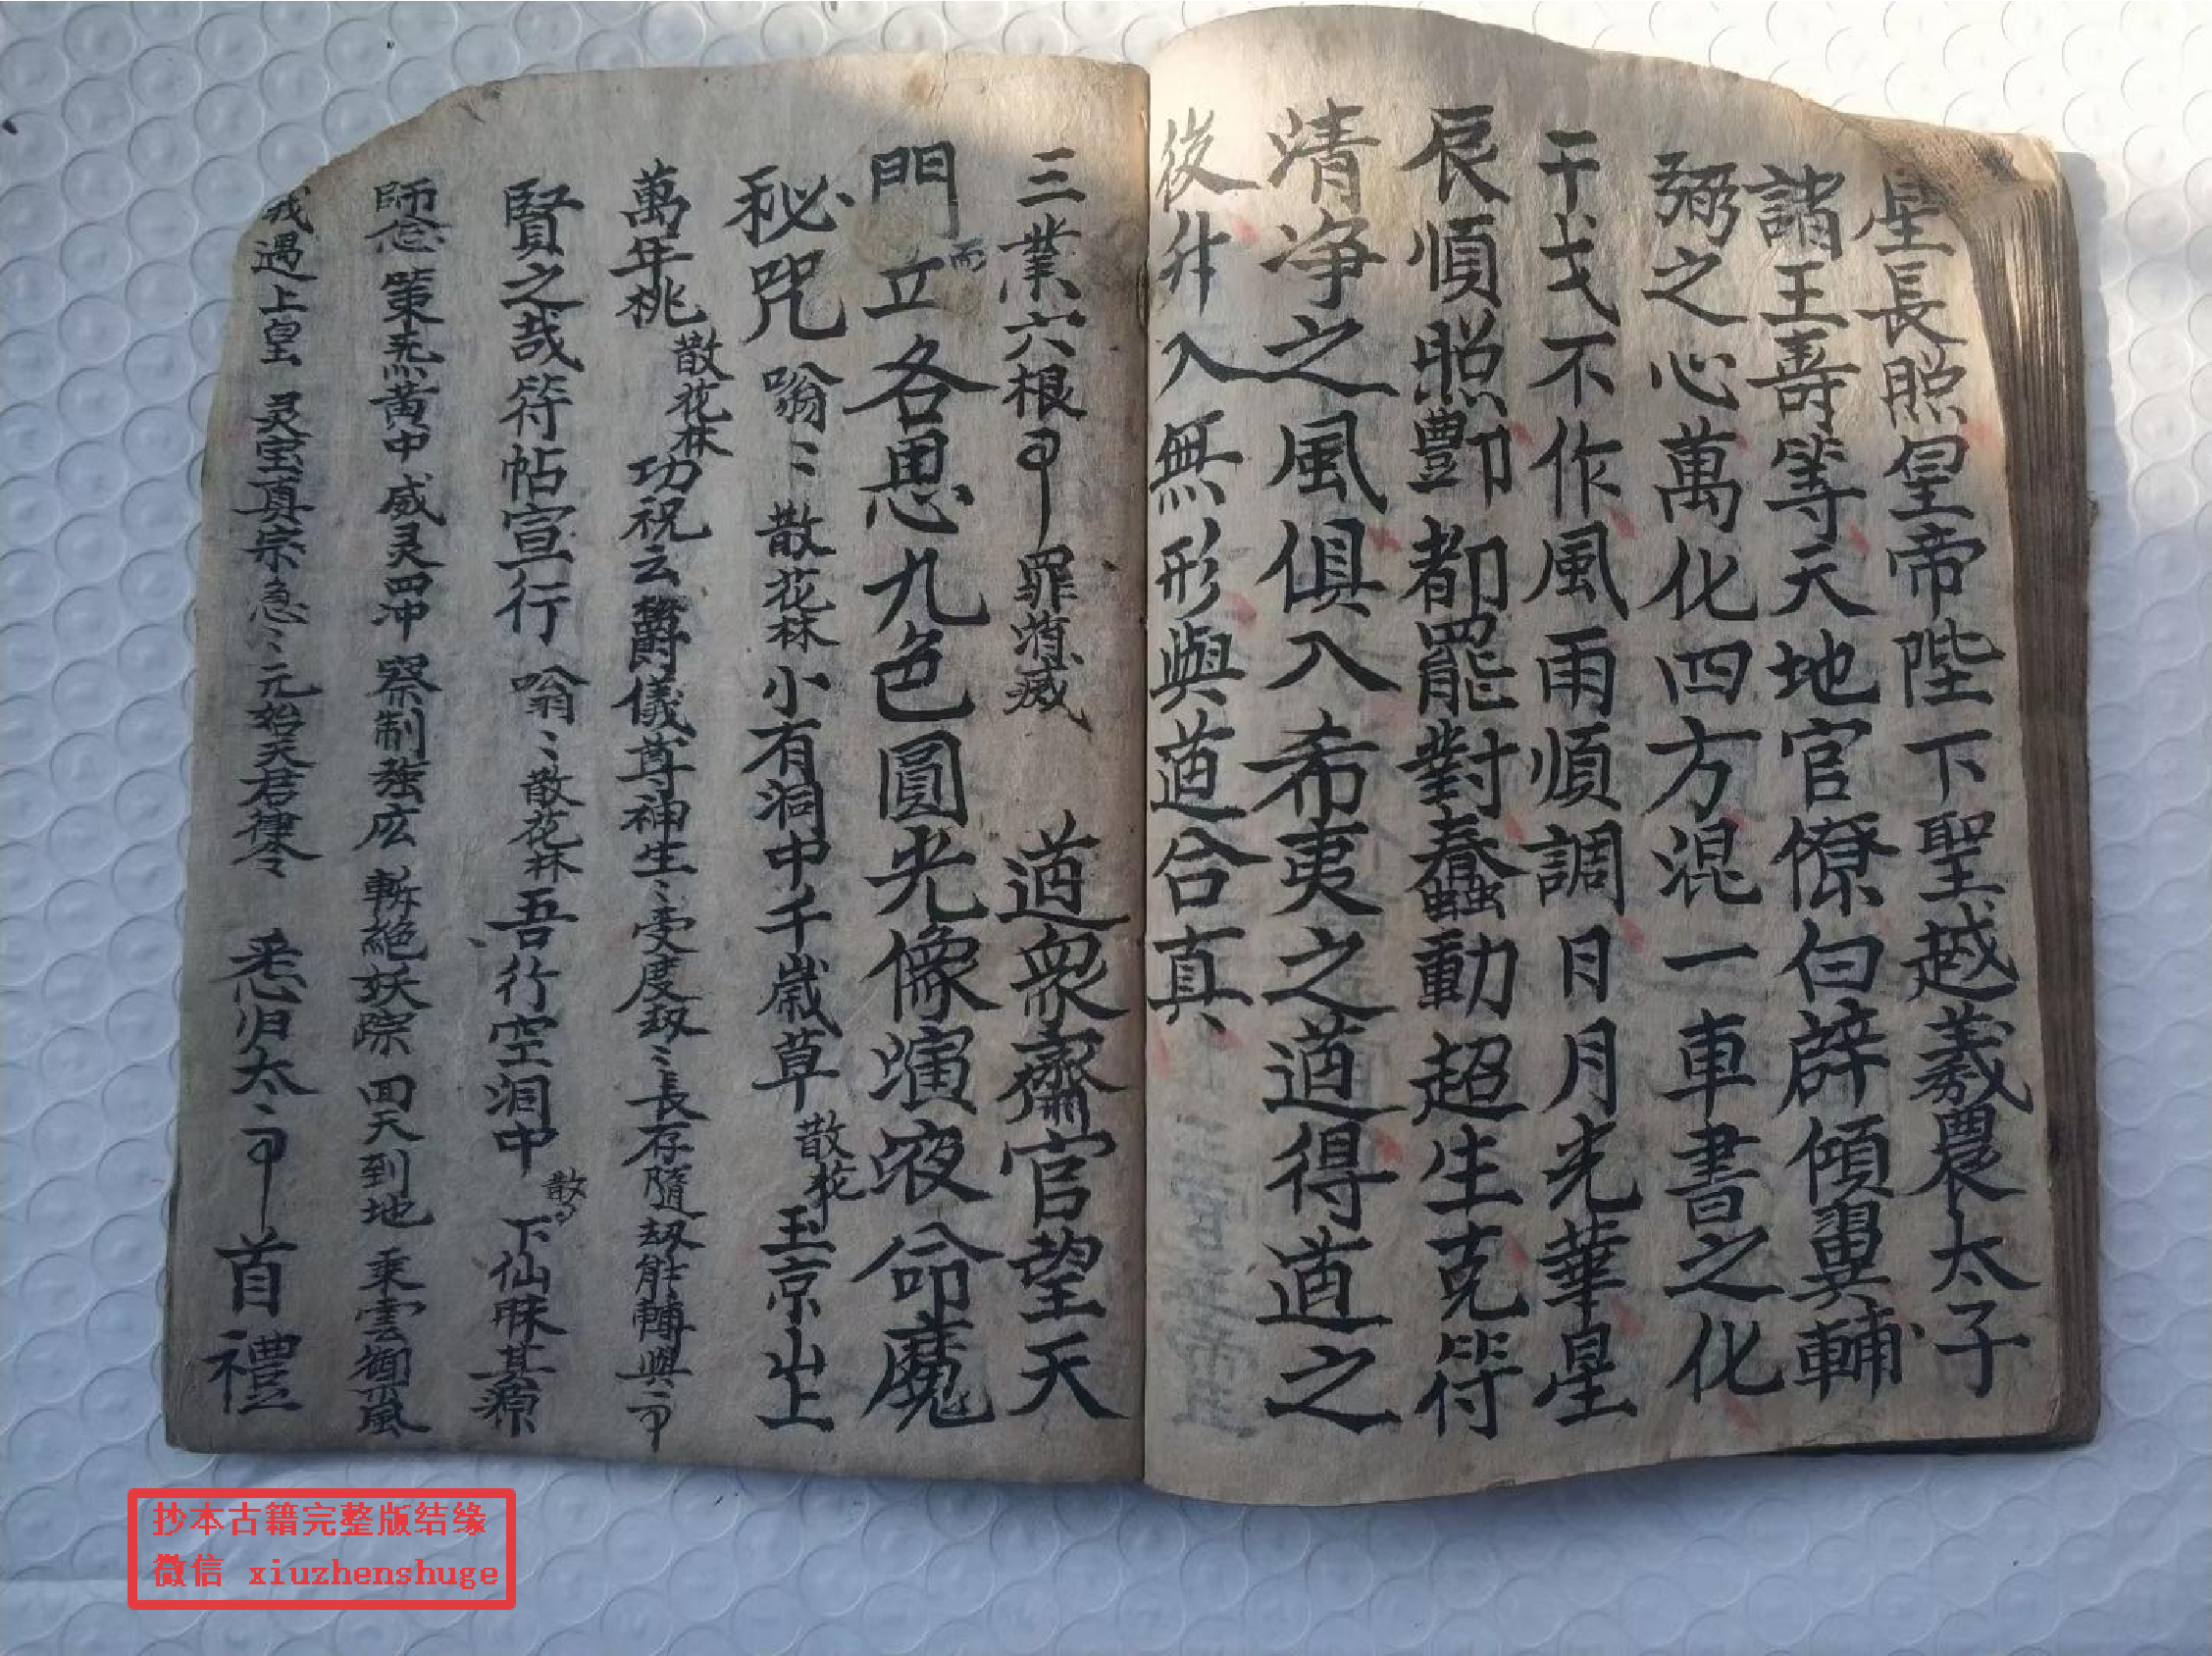 星長照皇帝陛下聖越羲農太子
諸王壽等天地官僚曰辟傾翼輔
弼之心萬化四方混一車書之化
干戈不作風雨順調日月光華星
辰順照酆都罷對蠢動超生克符
清净之風俱入希夷之道得道之
後升入無形與道合真
三業六根 罪消滅 道衆齋官望天
門而立各思九色圓光像演液命魔
秘咒 嗡〻散花林小有洞中千歲草散花玉京山上
萬年桃散花林功祝云 儀尊神生〻受度劫〻長存隨劫能輔與
賢之哉符帖宣行 嗡〻散花林吾行空洞中散 下仙昧其源
師念 策炁黃中威灵四冲 察制強庅 斬絕妖 回天到地 乘雲御風
我遇上皇 灵宝真宗急〻元始天君律令 悉归太〻 首禮
抄本古籍完整版结缘
微信 xiuzhenshuge